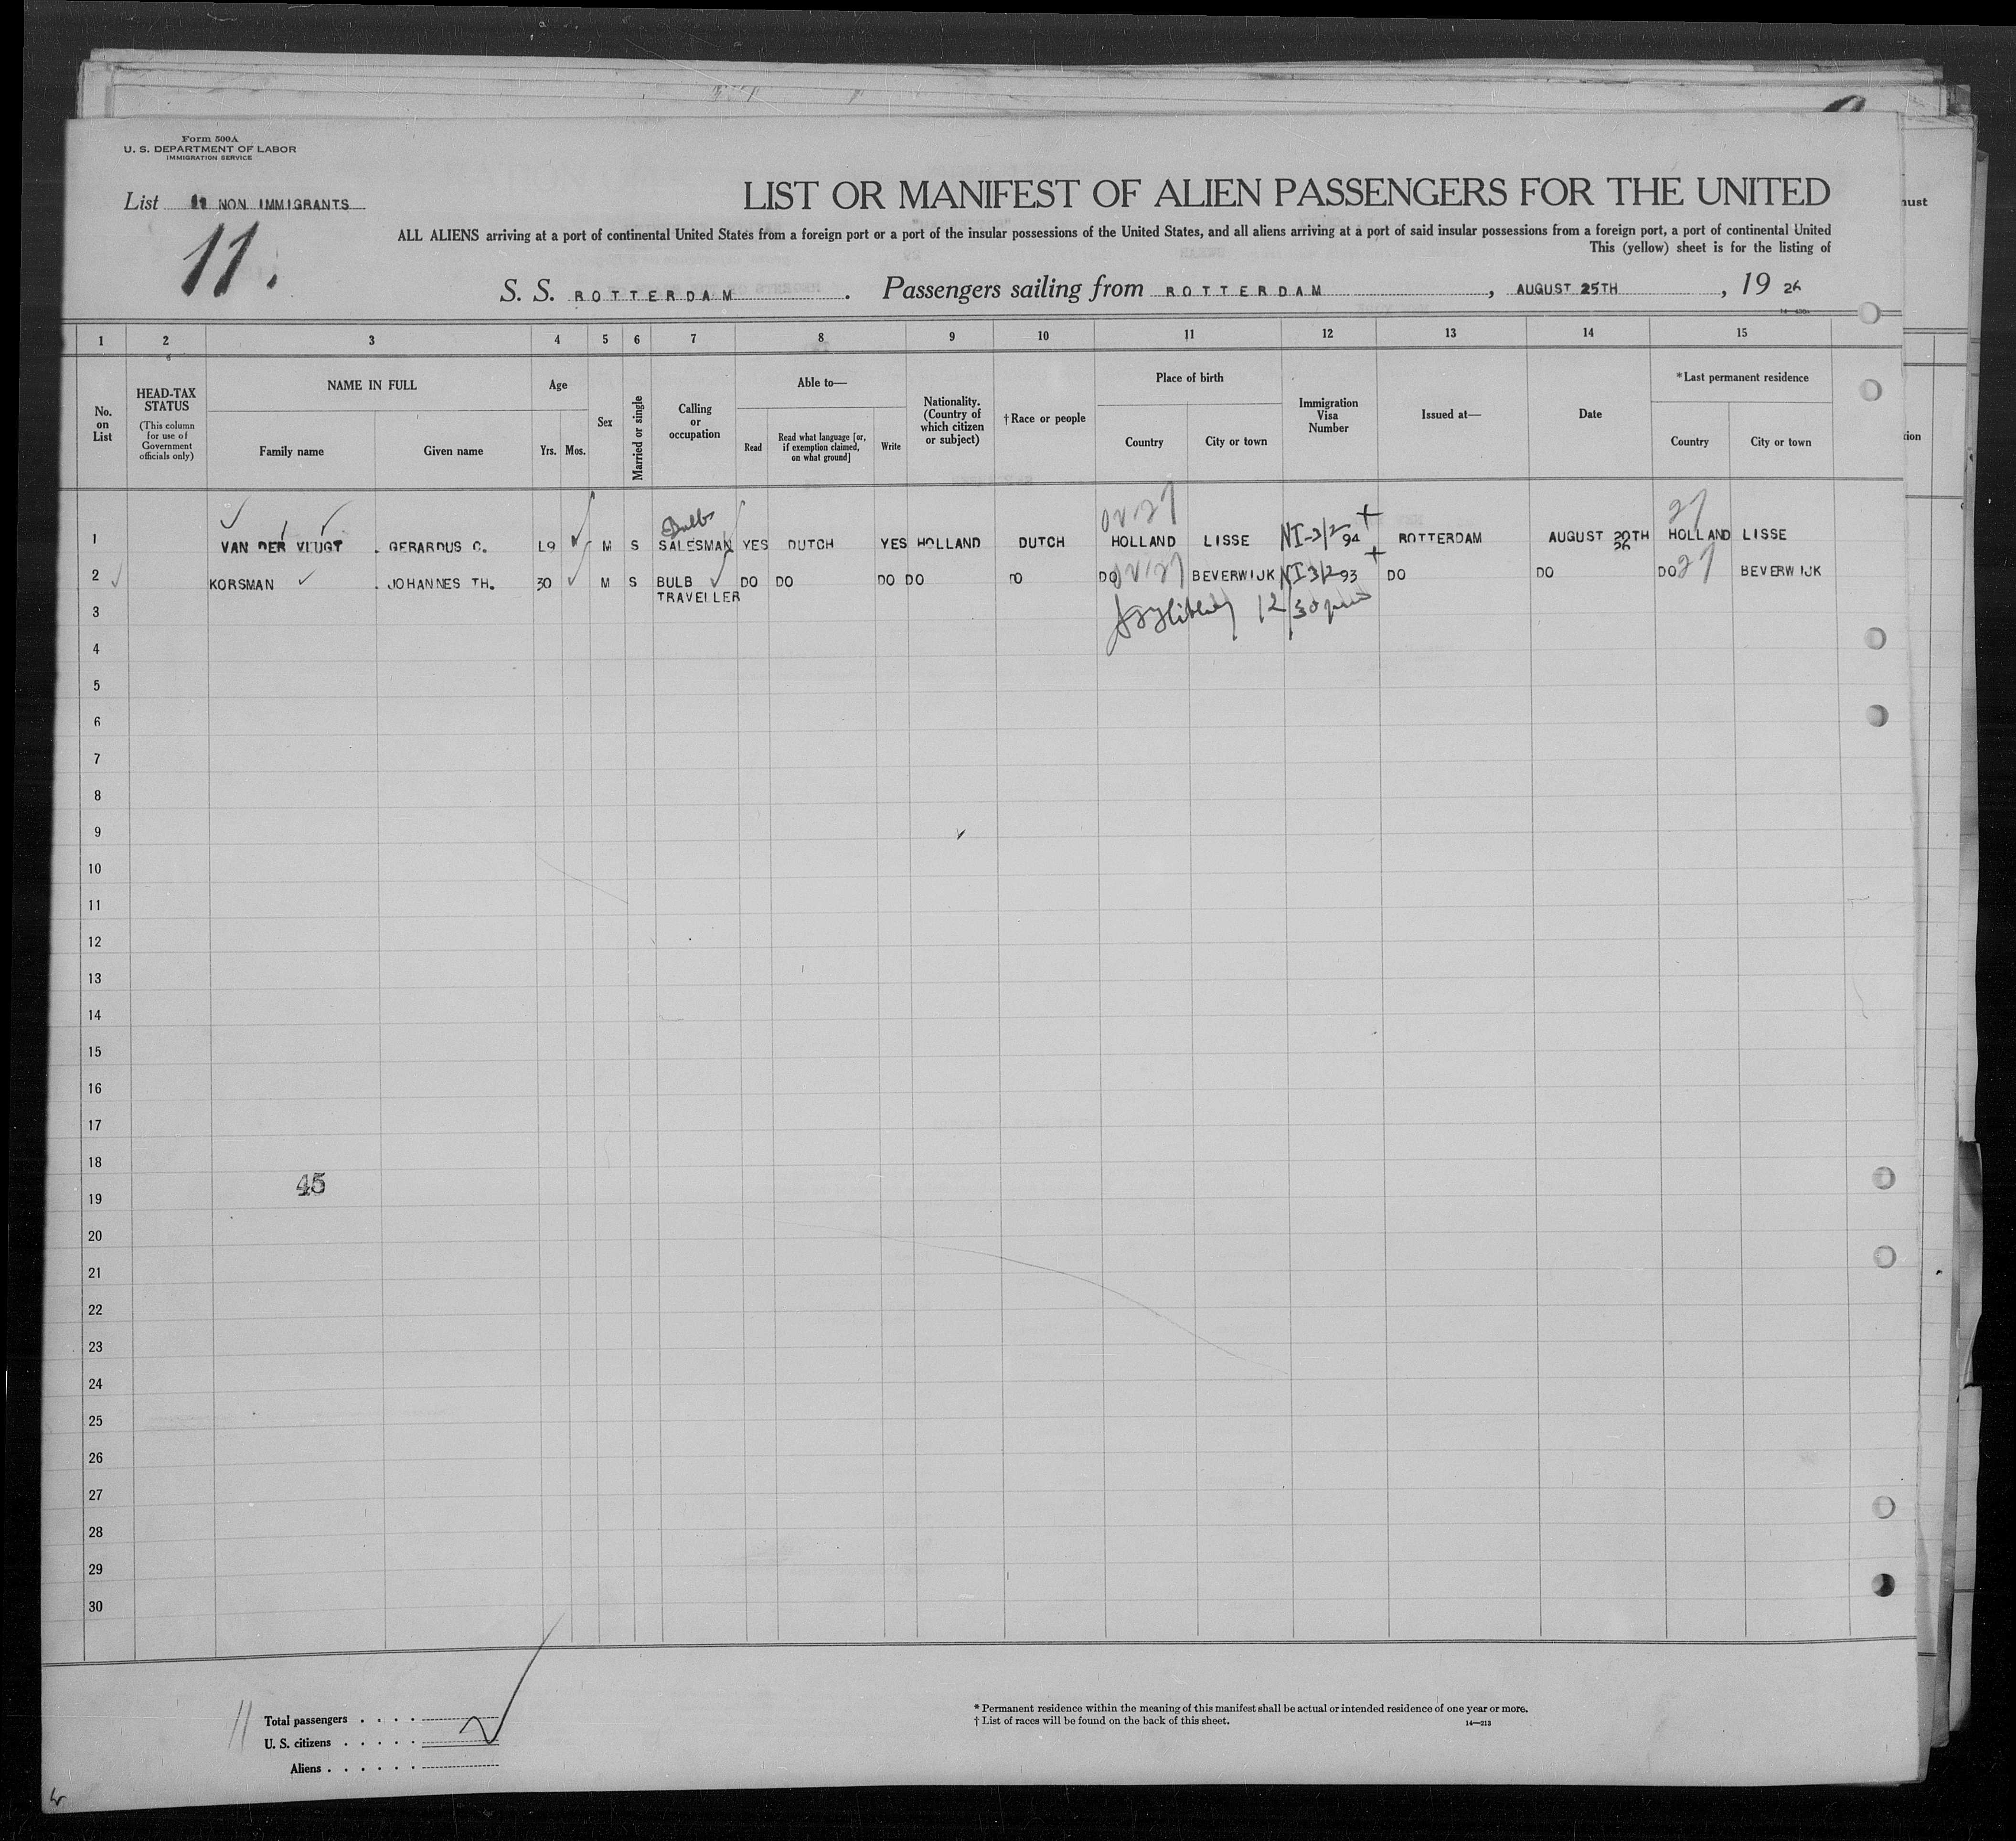 Form 500A
U. S. DEPARTMENT OF LABOR
IMMIGRATION SERVICE
List 11 NON IMMIGRANTS
11.
LIST OR MANIFEST OF ALIEN PASSENGERS FOR THE UNITED
ALL ALIENS arriving at a port of continental United States from a foreign port or a port of the insular possessions of the United States, and all aliens arriving at a port of said insular possessions from a foreign port, a port of continental United
This (yellow) sheet is for the listing of
S. S. ROTTERDAM . Passengers sailing from ROTTERDAM , AUGUST 25TH , 19 26
1 2 3 4 5 6 7 8 9 10 11 12 13 14 15
No. on List
HEAD-TAX STATUS
(This column for use of Government officials only)
NAME IN FULL
Family name Given name
Age
Yrs. Mos.
Sex
Married or single
Calling or occupation
Able to—
Read
Read what language [or, if exemption claimed, on what ground]
Write
Nationality. (Country of which citizen or subject)
†Race or people
Place of birth
Country City or town
Immigration Visa Number
Issued at—
Date
*Last permanent residence
Country City or town
Bulbs
27
1 VAN DER VLUGT . GERARDUS C. L9 M S SALESMAN YES DUTCH YES HOLLAND DUTCH HOLLAND LISSE NI-3/2 94 ROTTERDAM AUGUST 20TH HOLLAND LISSE
26
2 KORSMAN . JOHANNES TH. 30 M S BULB DO DO DO DO DO DO BEVERWIJK NI 3/2 93 DO DO DO 27 BEVERWIJK
TRAVELLER
3
4
5
6
7
8
9
10
11
12
13
14
15
16
17
18
45
19
20
21
22
23
24
25
26
27
28
29
30
11
Total passengers . . . .
U. S. citizens . . . . .
Aliens . . . . . .
2
* Permanent residence within the meaning of this manifest shall be actual or intended residence of one year or more.
† List of races will be found on the back of this sheet. 14—213